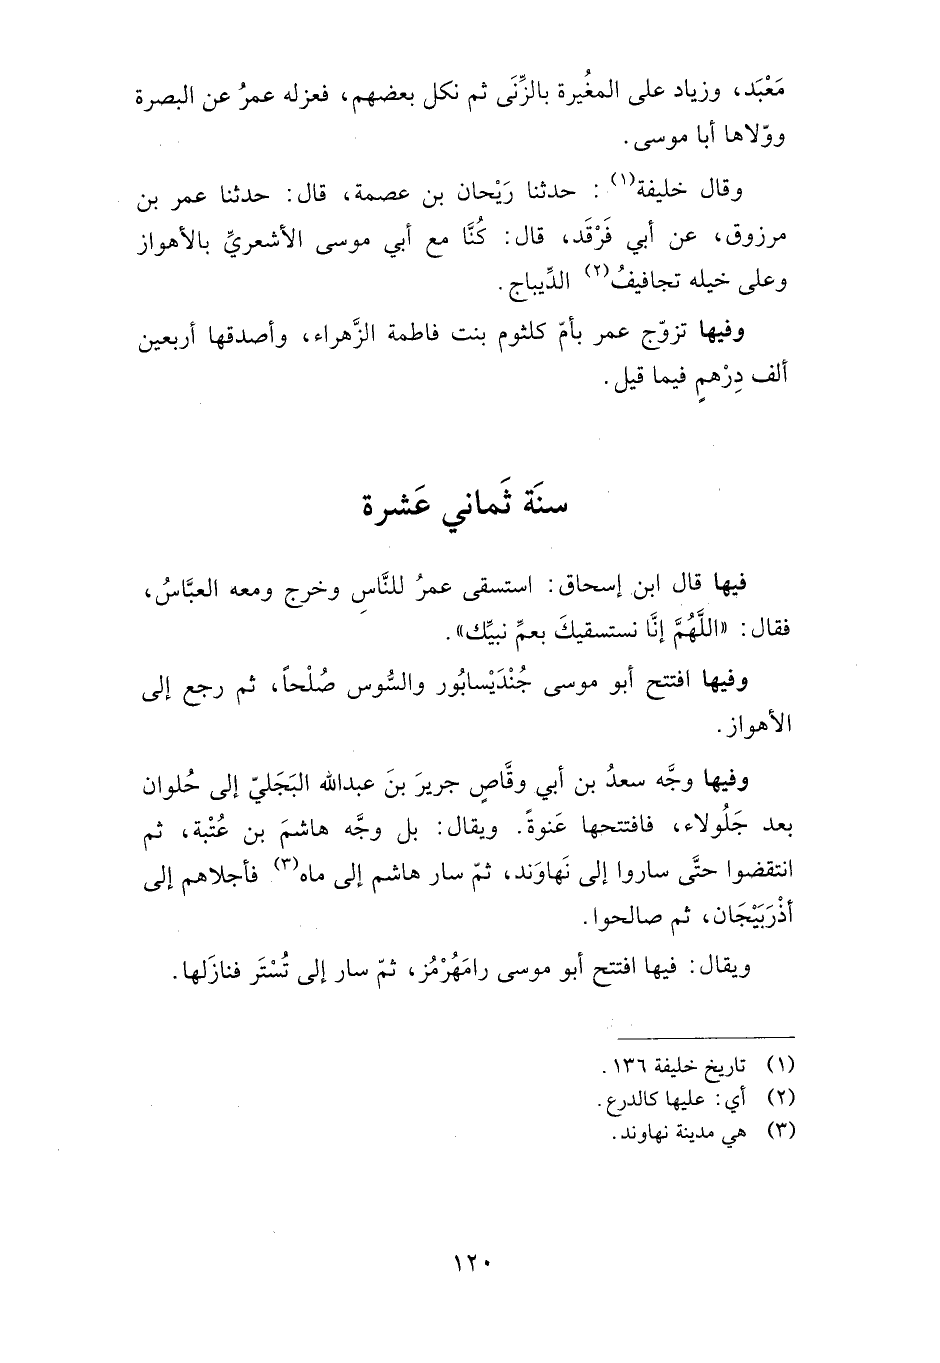 مَعْبَد، وزياد على المغُيرة بالزِّنَى ثم نكل بعضهم، فعزله عمرُ عن البصرة
وولّاها أبا موسى.
وقال خليفة(١) : حدثنا رَيْحان بن عصمة، قال: حدثنا عمر بن
مرزوق، عن أبي فَرْقَد، قال: كُنَّا مع أبي موسى الأشعريِّ بالأهواز
وعلى خيله تجافيفُ(٢) الدِّيباج.
وفيها تزوّج عمر بأمّ كلثوم بنت فاطمة الزَّهراء، وأصدقها أربعين
ألف دِرْهمٍ فيما قيل.
سنَة ثَماني عَشرة
فيها قال ابن إسحاق: استسقى عمرُ للنَّاسِ وخرج ومعه العبَّاسُ،
فقال: «اللَّهُمَّ إنَّا نستسقيكَ بعمِّ نبيِّك».
وفيها افتتح أبو موسى جُنْدَيْسابُور والسُّوس صُلْحاً، ثم رجع إلى
الأهواز.
وفيها وجَّه سعدُ بن أبي وقَّاصٍ جريرَ بنَ عبدالله البَجَليّ إلى حُلوان
بعد جَلُولاء، فافتتحها عَنوةً. ويقال: بل وجَّه هاشمَ بن عُتْبة، ثم
انتقضوا حتَّى ساروا إلى نَهاوَند، ثمّ سار هاشم إلى ماه(٣) فأجلاهم إلى
أذْرَبَيْجَان، ثم صالحوا.
ويقال: فيها افتتح أبو موسى رامَهُرْمُز، ثمّ سار إلى تُسْتَر فنازَلها.
(١) تاريخ خليفة ١٣٦.
(٢) أي: عليها كالدرع.
(٣) هي مدينة نهاوند.
١٢٠